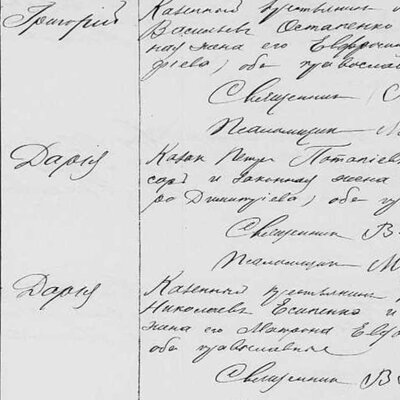 Григорій
Казенный крестьянин
Васильевъ Остапенко
ная жена его Евфроси
фіева, оба православ
Священник
Псаломщик
Дарія
Казак Петр Потапіев
сарь и законная жена
ра Димитріева, оба пр
Священник В
Псаломщик М
Дарія
Казенный крестьянин
Николаевъ Есипенко и
жена его Матрона Евф
оба православные
Священник В